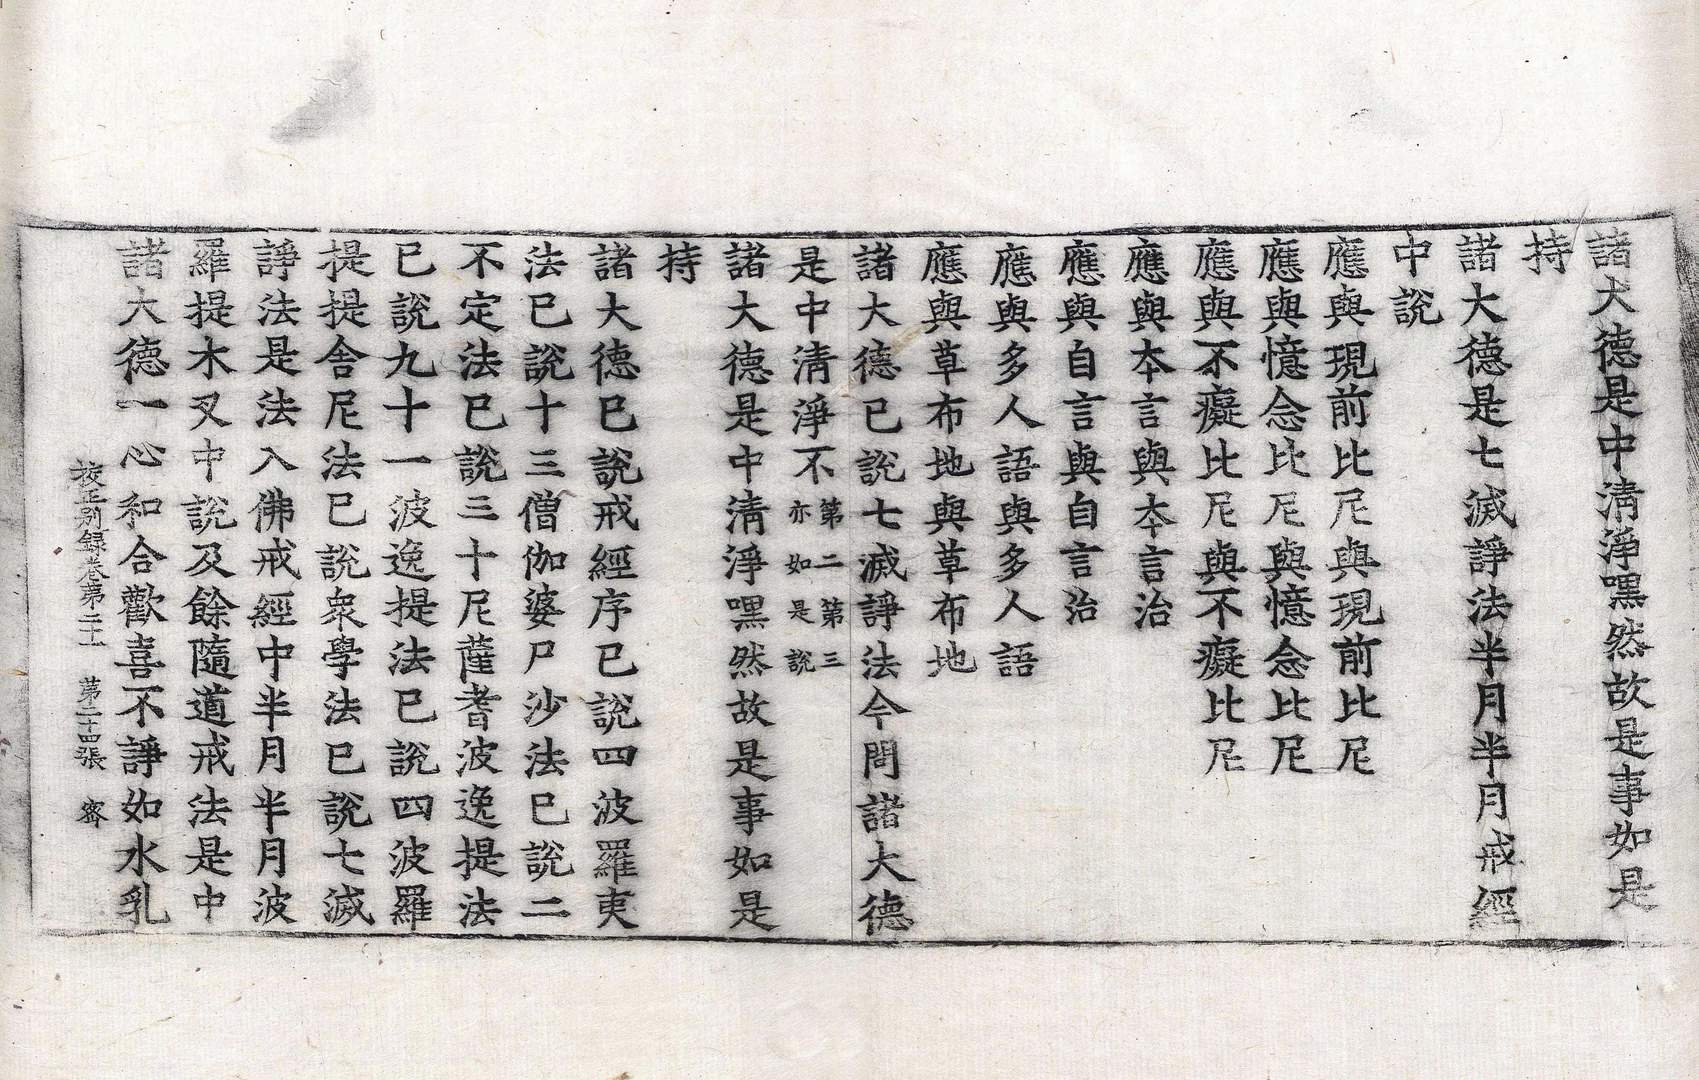 諸大德是中淸淨嘿然故是事如是
持
諸大德是七滅諍法半月半月戒經
中說
應與現前比尼與現前比尼
應與憶念比尼與憶念比尼
應與不癡比尼與不癡比尼
應與本言與本言治
應與自言與自言治
應與多人語與多人語
應與草布地與草布地
諸大德已說七滅諍法今問諸大德
是中淸淨不第二第三亦如是說
諸大德是中淸淨嘿然故是事如是
持
諸大德已說戒經序已說四波羅夷
法已說十三僧伽婆尸沙法已說二
不定法已說三十尼薩耆波逸提法
已說九十一波逸提法已說四波羅
提提舍尼法已說衆學法已說七滅
諍法是法入佛戒經中半月半月波
羅提木叉中說及餘隨道戒法是中
諸大德一心和合歡喜不諍如水乳
校正別録卷第二十 第二十四張 齊